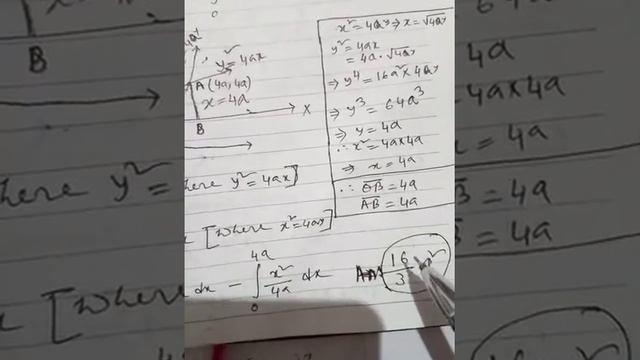 y² = 4ax
A (4a, 4a)
x = 4a
B
X
B
x² = 4ay ⇒ x = √4ay
y² = 4ax
= 4a·√4ay
⇒ y⁴ = 16a² × 4ay
⇒ y³ = 64a³
⇒ y = 4a
∴ x² = 4a×4a
⇒ x = 4a
∴ OB = 4a
AB = 4a
where y² = 4ax]
[where x² = 4ay]
dx − ∫₀⁴ᵃ x²/4a dx
Ans 16/3 a²
4a×4a
= 4a
= 4a
= 4a